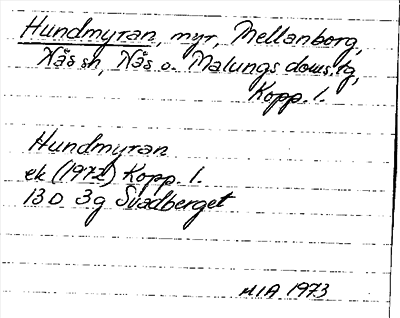 Hundmyran, myr, Mellanborg,
Nås sn, Nås o. Malungs doms. tg,
Kopp. l.
Hundmyran
ek (1972) Kopp. l.
13 D 3g Svadberget
MIA 1973